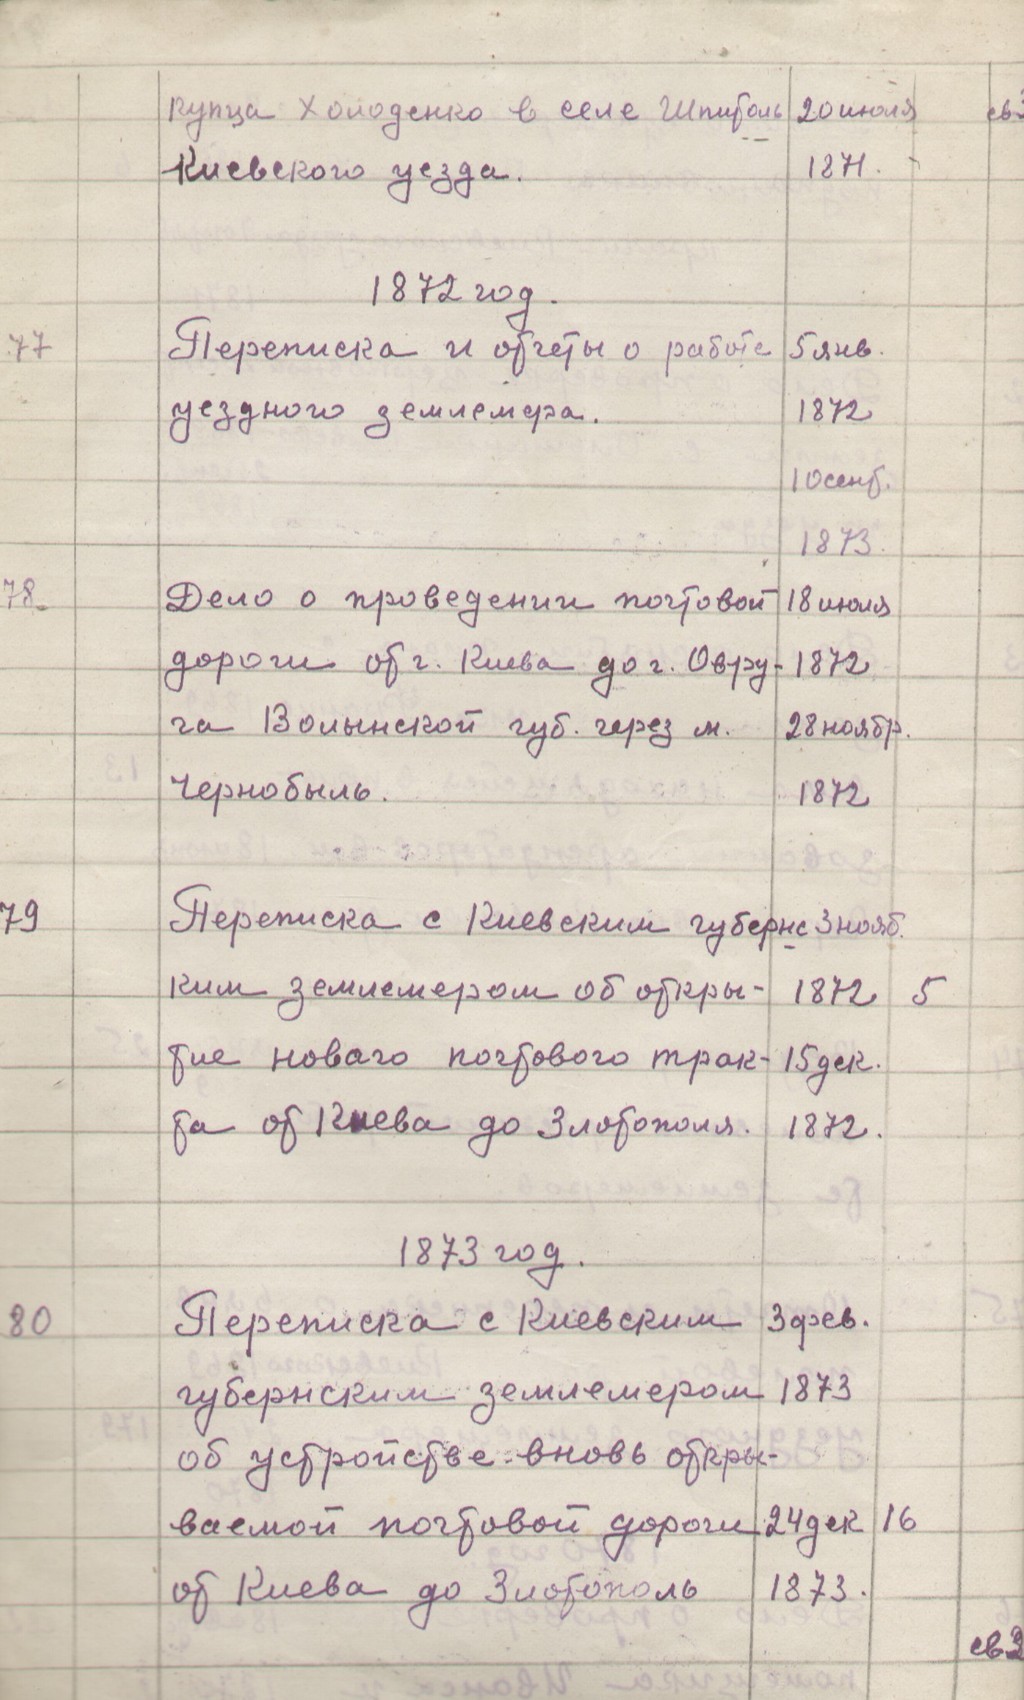 купца Холоденко в селе Шпитоль 20 июля
Киевского уезда. 1871.
1872 год.
77 Переписка и отчеты о работе 5 янв.
уездного землемера. 1872
10 сент.
1873.
78. Дело о проведении почтовой 18 июля
дороги от г. Киева до г. Овру- 1872
ча Волынской губ. через м. 28 ноябр.
Чернобыль. 1872
79 Переписка с Киевским губернс 3 нояб.
ким землемером об откры- 1872 5
тие новаго почтового трак- 15 дек.
та от Киева до Златополя. 1872.
1873 год.
80 Переписка с Киевским 3 фев.
губернским землемером 1873
об устройстве вновь откры-
ваемой почтовой дороги 24 дек 16
от Киева до Златополь 1873.